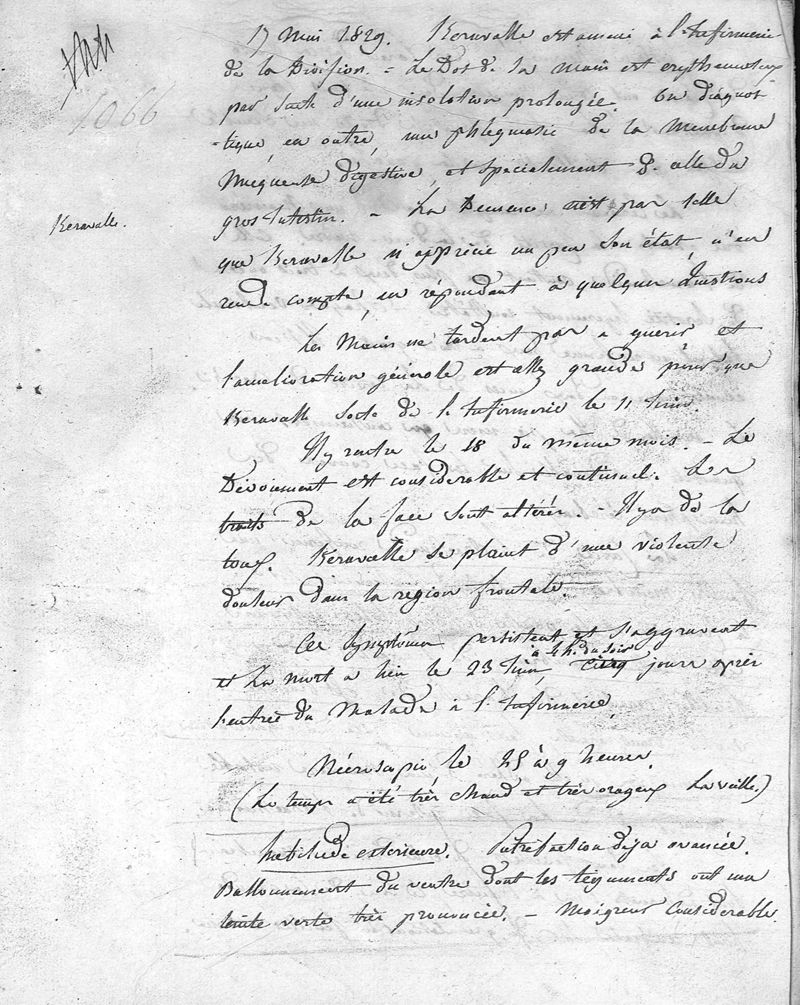 1066
17 Mai 1829. Keravalle est amené à l'Infirmerie
de la Division. = Le Dos de la main est erythemateux
par Suite d'une insolation prolongée. On diagnos
-tique, en outre, une phlegmasie de la Membrane
Muqueuse digestive, et spécialement de celle du
gros Intestin. - La Demence n'est pas telle
Keravalle.
que Keravalle n'apprécie un peu Son état, n'en
rende compte, en répondant à quelques Questions
Les Mains ne tardent pas a guerir et
l'amelioration générale est assez grande pour que
Keravalle Sorte de l'Infirmerie le 11 Juin.
Il y rentre le 18 du même mois. - Le
Dévoiement est considerable et continuel. Les
traits de la face Sont altérés. - Il y a de la
toux. Keravalle se plaint d'une violente
douleur dans la région frontale.
Ces Symptômes persistent et S'aggravent
à 4 h. du Soir
et La mort a lieu le 23 Juin, cinq jours après
l'entrée du Malade à l'Infirmerie.
Nécroscopie le 25 à 9 heures.
(Le temps a été très chaud et très orageux La veille.)
habitude exterieure. Putréfaction déja avancée.
Ballonnement du ventre dont les tégumens ont une
teinte verte très prononcée. - Maigreur Considerable.